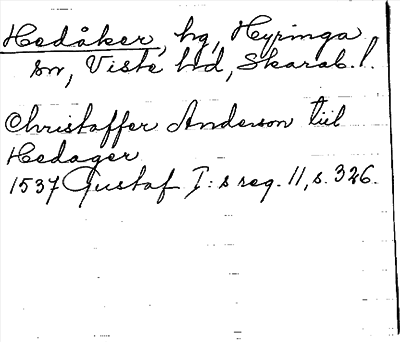 Hedåker, hg, Hyringa
sn, Viste hd, Skarab. l.
Christoffer Anderson till
Hedager
1537 Gustaf I:s reg. 11, s. 326.